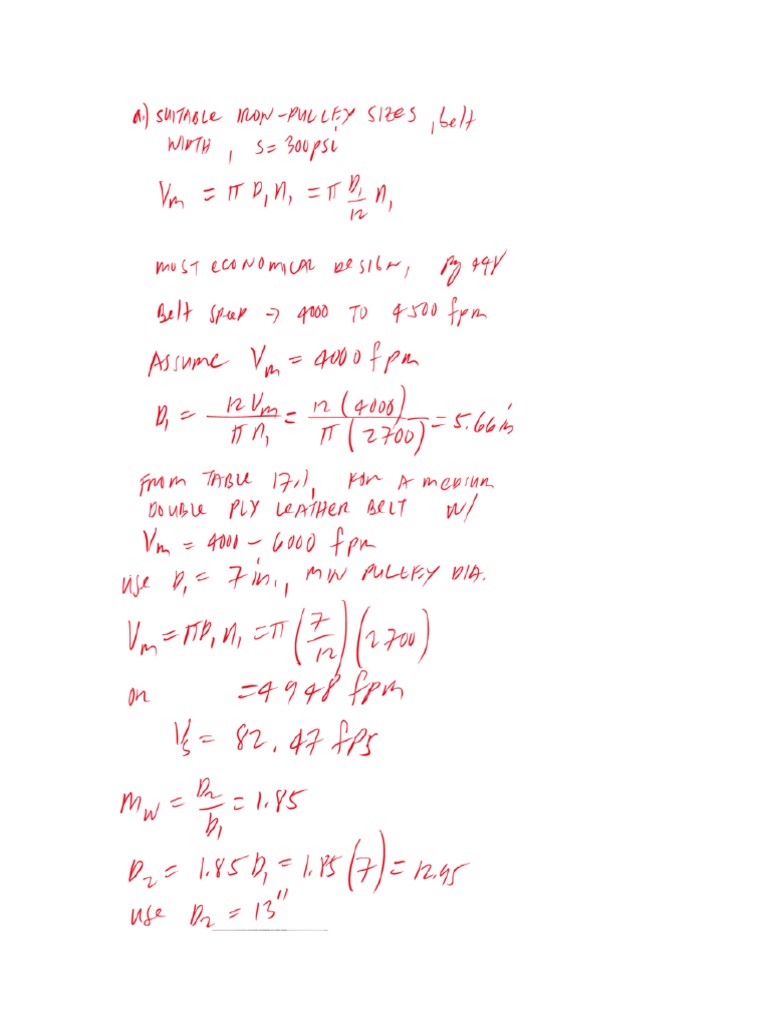 a.) SUITABLE IRON-PULLEY SIZES, belt
WIDTH, S=300psi
Vm = π D₁n₁ = π D₁/12 n₁
MOST ECONOMICAL DESIGN, pg 441
Belt speed → 4000 TO 4500 fpm
ASSUME Vm = 4000 fpm
D₁ = 12 Vm / π n₁ = 12 (4000) / π (2700) = 5.66 in
FROM TABLE 17.1, FOR A MEDIUM
DOUBLE PLY LEATHER BELT W/
Vm = 4000 - 6000 fpm
use D₁ = 7 in., MIN PULLEY DIA.
Vm = πD₁n₁ = π (7/12) (2700)
or = 4948 fpm
Vs = 82.47 fps
Mw = D₂/D₁ = 1.85
D₂ = 1.85D₁ = 1.85 (7) = 12.95
use D₂ = 13"